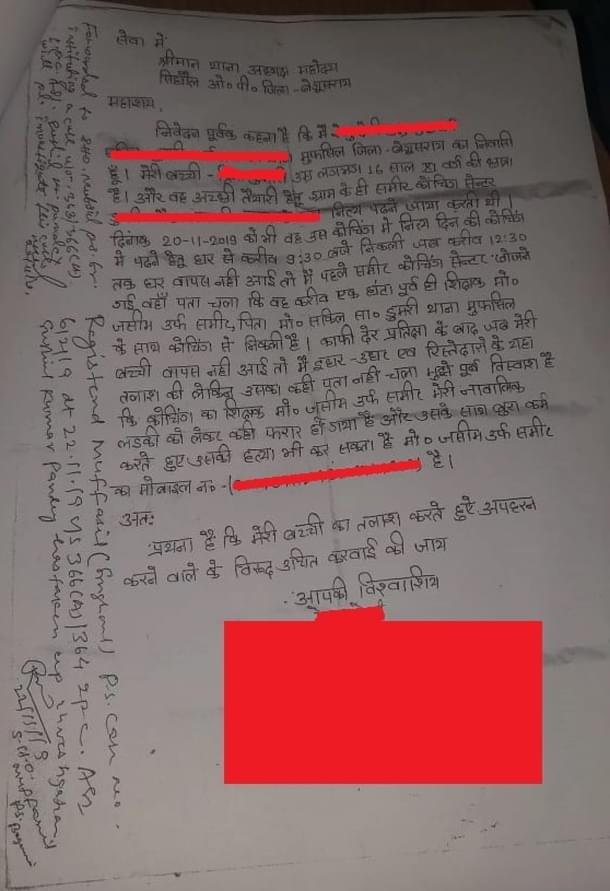 सेवा में
श्रीमान थाना अध्यक्ष महोदय
सिंघौल ओ०पी० जिला-बेगूसराय
महाशय,
निवेदन पूर्वक कहना है कि मैं
मुफसिल जिला-बेगूसराय का निवासी
है। मेरी बच्ची - उम्र लगभग 16 साल वर्ग की छात्रा
है। और वह अच्छी तैयारी हेतु ग्राम के ही समीर कोचिंग सेन्टर
नित्य पढ़ने जाया करती थी।
दिनांक 20-11-2019 को भी वह उस कोचिंग में नित्य दिन की कोचिंग
में पढने हेतु घर से करीब 9:30 बजे निकली जब करीब 12:30
तक घर वापस नही आई तो मैं पहले समीर कोचिंग सेन्टर खोजने
गई वहाँ पता चला कि वह करीब एक घंटा पूर्व ही शिक्षक मो०
जसीम उर्फ समीर, पिता मो० सकिल सा० डुमरी थाना मुफसिल
के साथ कोचिंग से निकली है। काफी देर प्रतिक्षा के बाद जब मेरी
बच्ची वापस नही आई तो मैं इधर-उधर एवं रिस्तेदारो के यहा
तलाश की लेकिन उसका कही पता नही चला मुझे पूर्ण विस्वाश है
कि कोचिंग का शिक्षक मो० जसीम उर्फ समीर मेरी नावालिक
लडकी को लेकर कही फरार हो गया है और उसके साथ बुरा कर्म
करते हुए उसकी हत्या भी कर सकता है मो० जसीम उर्फ समीर
का मोबाइल न० - है।
अतः
प्रथना है कि मेरी बच्ची का तलाश करते हुए अपहरन
करने वाले के विरूद्ध उचित करवाई की जाय
आपकी विश्वाशिय
Forwarded to SHO
for
instituting a case u/s-363/366(A)
IPC
will
Registered Muffasil (Singhaul) P.S. Case no.
612/19 dt 22.11.19 u/s 366(A)/364 IPC. ASI
Sushil Kumar Pandey has taken up
22/11/19
S.H.O.
P.S.